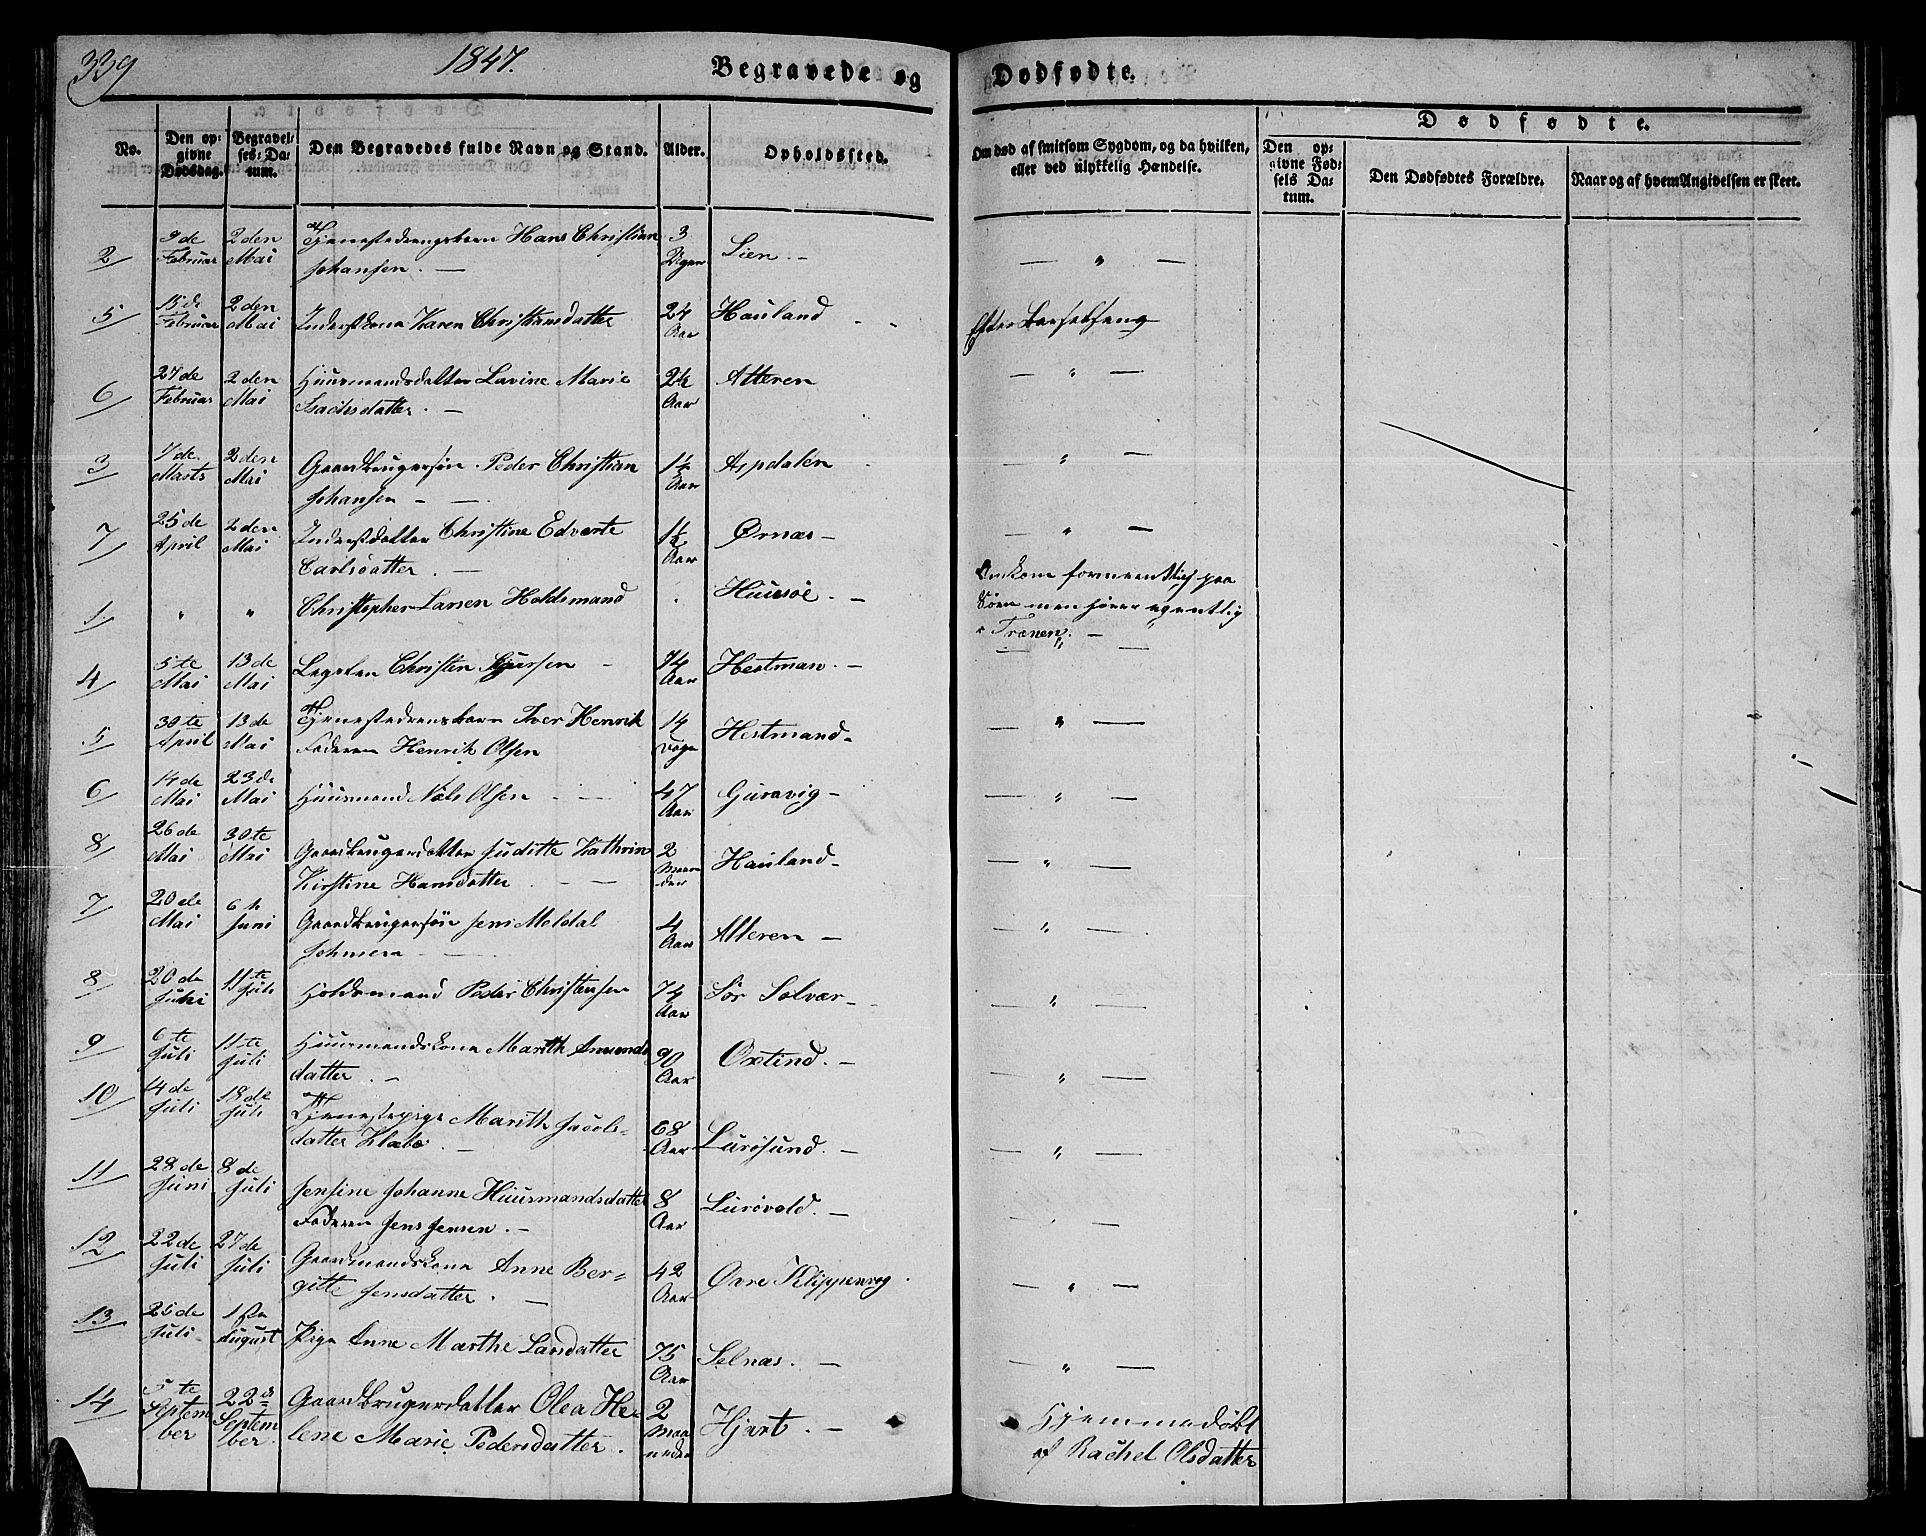 339
1847.
Begravede og
Dødfødte.
No.
Den op-
givne
Dødsdag.
Begravel-
ses-Da-
tum.
Den Begravedes fulde Navn og Stand.
Alder.
Opholdssted.
Om død af smitsom Sygdom, og da hvilken,
eller ved ulykkelig Hændelse.
Dødfødte.
Den op-
givne Fød-
sels Da-
tum.
Den Dødfødtes Forældre.
Naar og af hvem Angivelsen er skeet.
2
9de
Februar
2den
Mai
Hans Christian
Johansen.
3
Uger
Lien.
5
15de
Februar
2den
Mai
Inderstkone Karen Christiansdatter
24
Aar
Hauland
Efter Barselseng
6
27de
Februar
2den
Mai
Huusmandsdatter Lavine Marie
Isachsdatter.
2½
Aar
Alteren
3
7de
Marts
2den
Mai
Gaardbrugersøn Peder Christian
Johansen
1½
Aar
Aspdalen
7
25de
April
2den
Mai
Inderstdatter Christine Edvarte
Carlsdatter.
1½
Aar
Ørnæs
1
"
"
Christopher Larsen Holdsmand
Huusøe.
Omkom formeentlig paa
Søen men hører egentlig
Trænen.
4
5te
Mai
13de
Mai
Christen
74
Aar
Hestman.
5
30te
April
13de
Mai
Iver Henrik
Faderen Henrik Olsen
14
Dage
Hestmand
6
14de
Mai
23de
Mai
Huusmand Nils Olsen
47
Aar
Guravig
8
26de
Mai
30te
Mai
Gaardbrugerdatter Juditte Kathrin
Kirstine Hansdatter.
2
Maane
der
Hauland
7
20de
Mai
6te
Juni
Gaardbrugersøn Jens Meldal
4
Aar
Alteren
8
20de
Juni
11te
Juli
Holdsmand Peder Christensen
74
Aar
Sör Solvær
9
6te
Juli
11te
Juli
Huusmandskone Marith Amunds
datter.
90
Aar
Oxtind.
10
14de
Juli
18de
Juli
Tjenestepige Marith Jacobs-
datter Klabo.
68
Aar
Lurøsund.
11
28de
Juni
8de
Juli
Jensine Johanne Huusmandsdatter
Faderen Jens Jensen.
8
Aar
Lurøvold.
12
22de
Juli
27de
Juli
Gaardmandskone Anne Ber-
gitte Jensdatter.
42
Aar
Øvre Klippenvog.
13
25de
Juli
1ste
August
Pige Anne Marthe Larsdatter
75
Aar
Selnæs.
14
5te
Septem
ber
22de
Septem
ber.
Gaardbrugerdatter Olea He-
lene Marie Pedersdatter.
2
Maa
neder
Hjart.
Hjemmedøbt
af Rachel Olsdatter